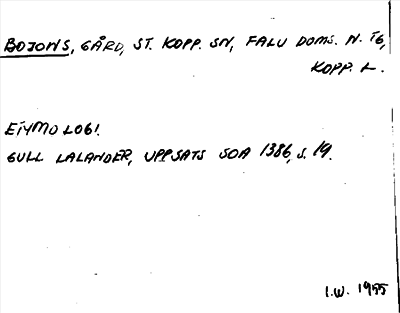 BOJONS, GÅRD, ST. KOPP. SN, FALU DOMS. N. TG,
KOPP. L.
ETYMOLOGI.
GULL LALANDER, UPPSATS SOA 1386, S. 19.
I.W. 1955